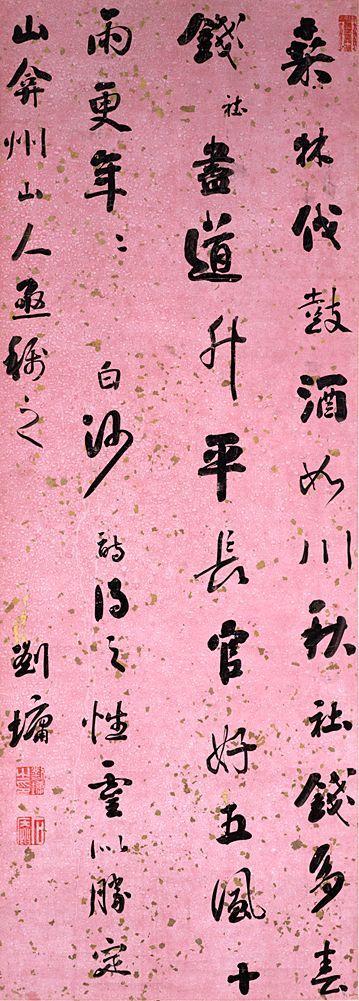 桑林伐鼓酒如川秋社錢多春
錢社盡道升平長官好五風十
雨更年〻白沙詩得之性靈以勝定
山弇州山人亟稱之 劉墉